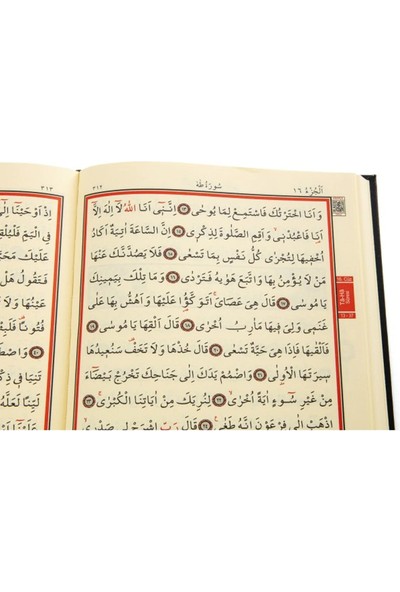 اَلْجُزْءُ ١٦
سُورَةُ طٰهٰ
٣١٢
وَاَنَا اخْتَرْتُكَ فَاسْتَمِعْ لِمَا يُوحٰى ﴿١٣﴾ اِنَّنٖٓي اَنَا اللّٰهُ لَٓا اِلٰهَ اِلَّٓا
اَنَا فَاعْبُدْنٖي وَاَقِمِ الصَّلٰوةَ لِذِكْرٖي ﴿١٤﴾ اِنَّ السَّاعَةَ اٰتِيَةٌ اَكَادُ
اُخْفٖيهَا لِتُجْزٰى كُلُّ نَفْسٍ بِمَا تَسْعٰى ﴿١٥﴾ فَلَا يَصُدَّنَّكَ عَنْهَا
مَنْ لَا يُؤْمِنُ بِهَا وَاتَّبَعَ هَوٰيهُ فَتَرْدٰى ﴿١٦﴾ وَمَا تِلْكَ بِيَمٖينِكَ
يَا مُوسٰى ﴿١٧﴾ قَالَ هِيَ عَصَايَ اَتَوَكَّؤُ۬ا عَلَيْهَا وَاَهُشُّ بِهَا عَلٰى
غَنَمٖي وَلِيَ فٖيهَا مَاٰرِبُ اُخْرٰى ﴿١٨﴾ قَالَ اَلْقِهَا يَا مُوسٰى ﴿١٩﴾
فَاَلْقٰيهَا فَاِذَا هِيَ حَيَّةٌ تَسْعٰى ﴿٢٠﴾ قَالَ خُذْهَا وَلَا تَخَفْ سَنُعٖيدُهَا
سٖيرَتَهَا الْاُو۫لٰى ﴿٢١﴾ وَاضْمُمْ يَدَكَ اِلٰى جَنَاحِكَ تَخْرُجْ بَيْضَٓاءَ
مِنْ غَيْرِ سُٓوءٍ اٰيَةً اُخْرٰى ﴿٢٢﴾ لِنُرِيَكَ مِنْ اٰيَاتِنَا الْكُبْرٰى ﴿٢٣﴾
اِذْهَبْ اِلٰى فِرْعَوْنَ اِنَّهُ طَغٰى ﴿٢٤﴾ قَالَ رَبِّ اشْرَحْ لٖي صَدْرٖي
TÂ-HÂ
٣١٣
اِذْ اَوْحَيْنَٓا اِلٰٓى
فِي الْيَمِّ فَلْيُلْقِهِ
عَلَيْكَ مَحَبَّةً
فَتَقُولُ هَلْ
عَيْنُهَا وَلَا
فُتُونًا فَلَبِثْتَ
﴿٤٠﴾ وَاصْطَنَعْتُكَ
تَنِيَا فٖي ذِكْرٖي
لَيِّنًا لَعَلَّهُ